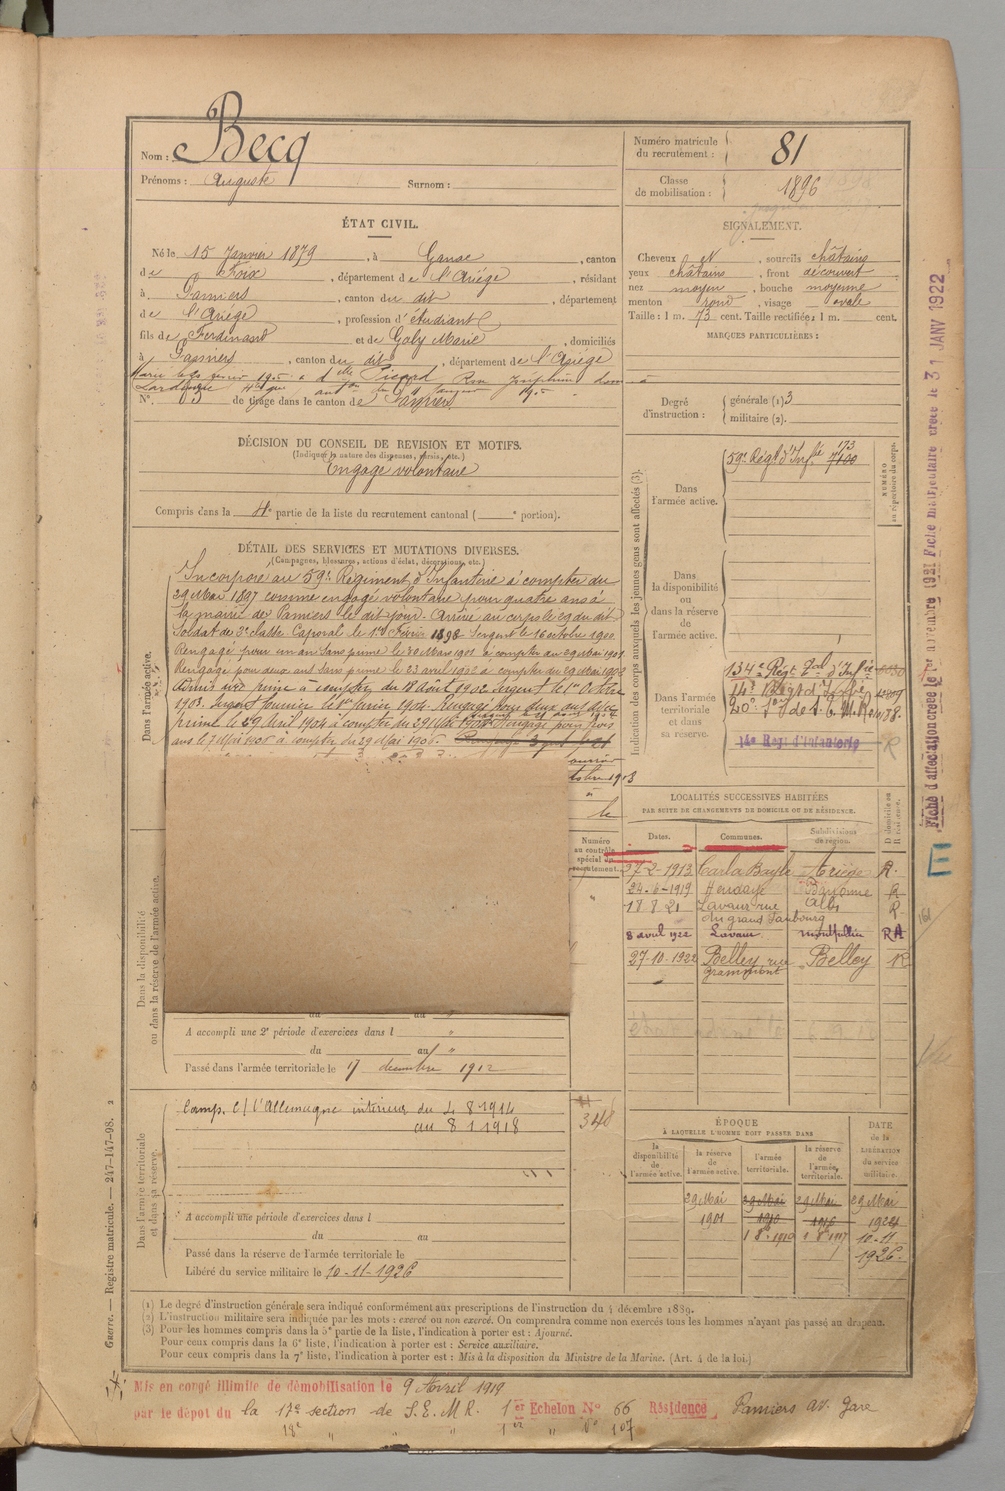 Nom : Becq
Prénoms : Auguste Surnom :
Numéro matricule du recrutement : 81
Classe de mobilisation : 1896
ÉTAT CIVIL.
Né le 15 Janvier 1879, à Ganac, canton
de Foix, département de l'Ariège, résidant
à Pamiers, canton du dit, département
de l'Ariège, profession d'étudiant
fils de Ferdinand et de Galy Marie, domiciliés
à Pamiers, canton du dit, département de l'Ariège
N° 3 de tirage dans le canton de Pamiers
SIGNALEMENT.
Cheveux et, sourcils châtains
yeux châtains, front découvert
nez moyen, bouche moyenne
menton rond, visage ovale
Taille : 1 m. 73 cent. Taille rectifiée : 1 m. cent.
MARQUES PARTICULIÈRES :
Degré d'instruction : générale (1) 3
militaire (2).
DÉCISION DU CONSEIL DE REVISION ET MOTIFS.
(Indiquer la nature des dispenses, sursis, etc.)
Engagé volontaire
Compris dans la partie de la liste du recrutement cantonal ( e portion).
DÉTAIL DES SERVICES ET MUTATIONS DIVERSES.
(Campagnes, blessures, actions d'éclat, décorations, etc.)
Dans l'armée active.
Incorporé au 59e Régiment d'Infanterie à compter du
29 Mai 1897 comme engagé volontaire pour quatre ans à
la mairie de Pamiers le dit jour. Arrivé au corps le 29 du dit
Soldat de 2e classe Caporal le 1er Février 1898 Sergent le 16 octobre 1900
Rengagé pour un an sans prime le 30 Mars 1901 à compter du 29 Mai 1901
Rengagé pour deux ans sans prime le 23 avril 1902 à compter du 29 Mai 1902
Admis avec prime à compter du 18 Août 1902 Sergent le 1er Octobre
1903. Sergent fourrier le 1er Janvier 1904. Rengagé pour deux ans avec
prime le 29 Avril 1904 à compter du 29 Mai 1904 Rengagé pour trois
ans le 7 Mai 1906 à compter du 29 Mai 1906.
Indication des corps auxquels les jeunes gens sont affectés (3).
NUMÉRO au répertoire du corps.
Dans l'armée active.
59e Régt d'Infie 173
7100
Dans la disponibilité ou dans la réserve de l'armée active.
Dans l'armée territoriale et dans sa réserve.
134e Régt Tal d'Infie
14e Régt d'Infanterie R
LOCALITÉS SUCCESSIVES HABITÉES
PAR SUITE DE CHANGEMENTS DE DOMICILE OU DE RÉSIDENCE.
Dates. Communes. Subdivisions de région. D domicile ou R résidence.
27-2-1913 Carla Bayle Ariège R.
24-6-1919 Hendaye Bayonne R
18 8 21 Lavaur rue du grand Faubourg Albi R
8 avril 1922 Lavaur Montpellier RA
27-10-1922 Belley rue Grammont Belley R
Numéro au contrôle spécial du recrutement.
Dans la disponibilité ou dans la réserve de l'armée active.
du au
A accompli une 2e période d'exercices dans l "
du au "
Passé dans l'armée territoriale le 17 décembre 1912
Dans l'armée territoriale et dans sa réserve.
Camp. c/ l'Allemagne intérieur du 4 8 1914
au 8 1 1918
348
A accompli une période d'exercices dans l
du au
Passé dans la réserve de l'armée territoriale le
Libéré du service militaire le 10-11-1926
ÉPOQUE
À LAQUELLE L'HOMME DOIT PASSER DANS
la disponibilité de l'armée active. la réserve de l'armée active. l'armée territoriale. la réserve de l'armée territoriale.
DATE de la LIBÉRATION du service militaire.
29 Mai 29 Mai 29 Mai 29 Mai
1901 1910 1916
10-11
1926.
(1) Le degré d'instruction générale sera indiqué conformément aux prescriptions de l'instruction du 4 décembre 1889.
(2) L'instruction militaire sera indiquée par les mots : exercé ou non exercé. On comprendra comme non exercés tous les hommes n'ayant pas passé au drapeau.
(3) Pour les hommes compris dans la 5e partie de la liste, l'indication à porter est : Ajourné.
Pour ceux compris dans la 6e liste, l'indication à porter est : Service auxiliaire.
Pour ceux compris dans la 7e liste, l'indication à porter est : Mis à la disposition du Ministre de la Marine. (Art. 4 de la loi.)
Guerre. — Registre matricule. — 247-147-98. 2
Mis en congé illimité de démobilisation le 9 Avril 1919
par le dépôt du la 17e section de S.E.M.R. 1er Echelon N° 66 Résidence Pamiers av. Gare
18e " " 1er " n° 107